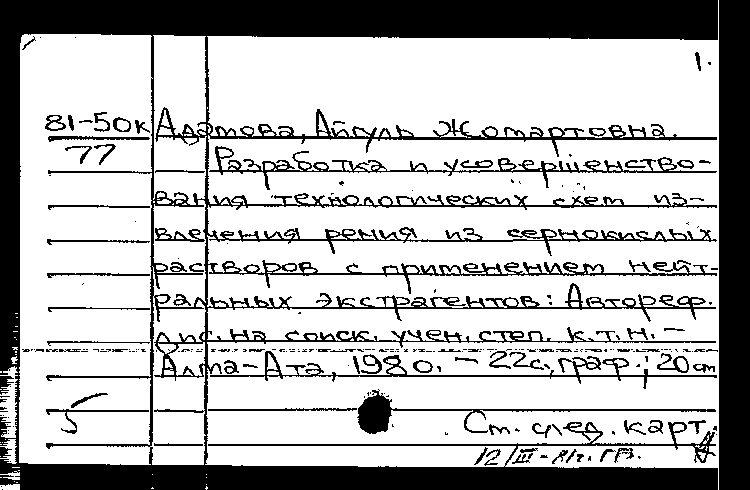 1.
81-50к Адамова, Айгуль Жомартовна.
77 Разработка и усовершенство-
вания технологических схем из-
влечения рения из сернокислых
растворов с применением нейт-
ральных экстрагентов: Автореф.
дис. на соиск. учен. степ. к.т.н. –
Алма-Ата, 1980. – 22с., граф.; 20 см
5
См. след. карт.
12/III-81г.